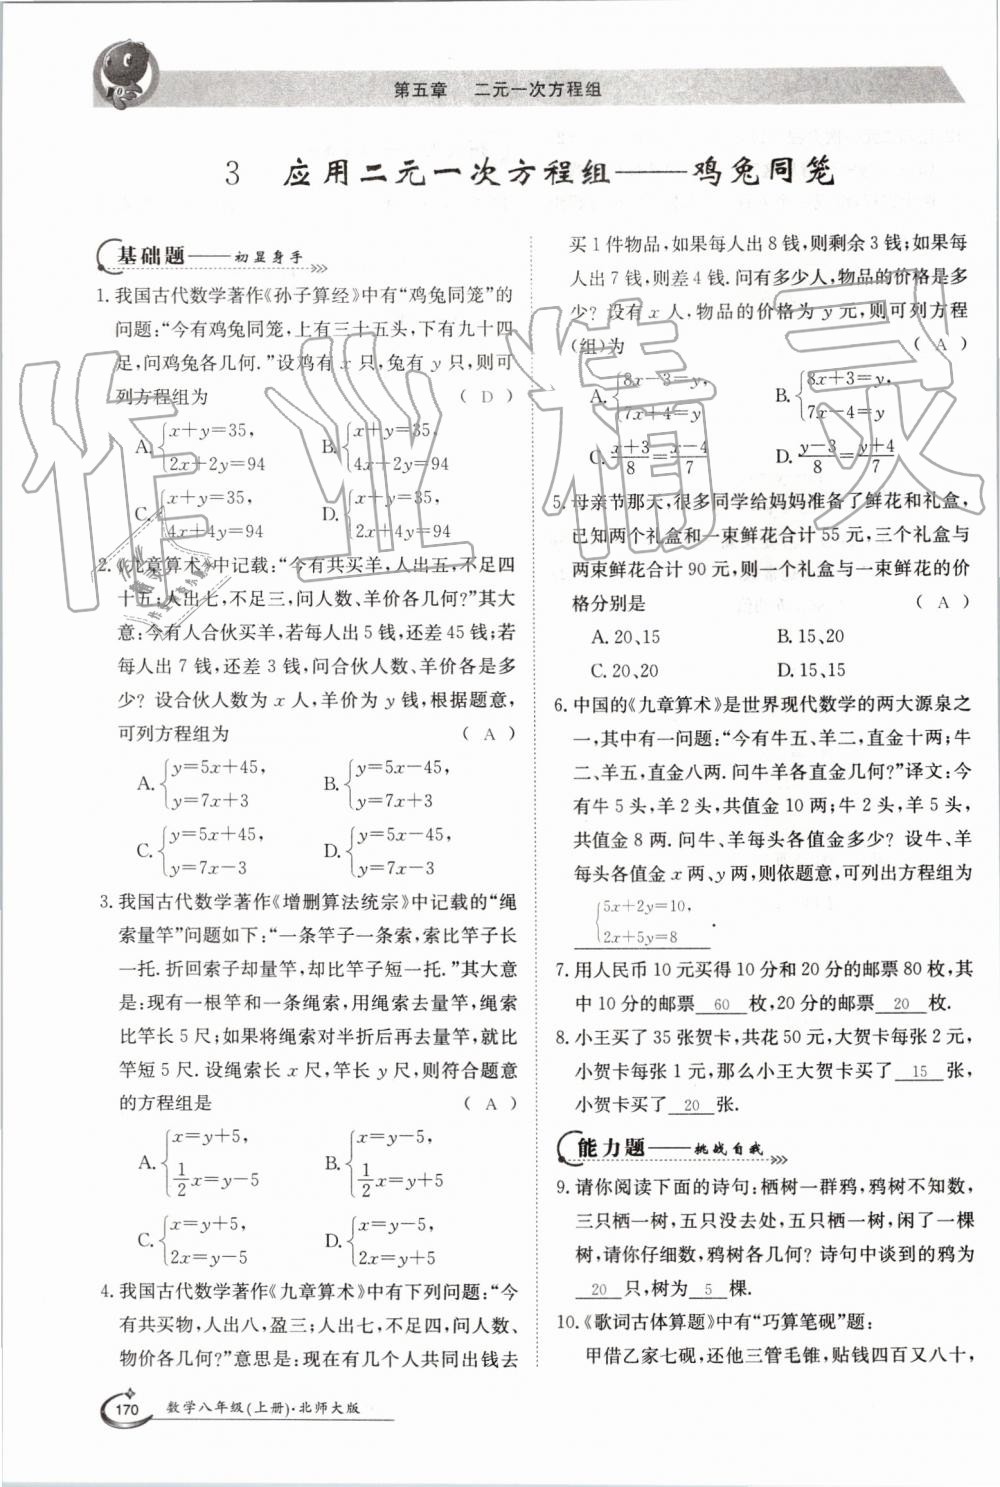 第五章 二元一次方程组
3 应用二元一次方程组——鸡兔同笼
基础题——初显身手
1. 我国古代数学著作《孙子算经》中有“鸡兔同笼”的
问题:“今有鸡兔同笼,上有三十五头,下有九十四
足,问鸡兔各几何.”设鸡有 x 只,兔有 y 只,则可
列方程组为 ( D )
A. {x+y=35, B. {x+y=35,
2x+2y=94 4x+2y=94
C. {x+y=35, D. {x+y=35,
4x+4y=94 2x+4y=94
2.《九章算术》中记载:“今有共买羊,人出五,不足四
十五;人出七,不足三,问人数、羊价各几何?”其大
意:今有人合伙买羊,若每人出 5 钱,还差 45 钱;若
每人出 7 钱,还差 3 钱,问合伙人数、羊价各是多
少? 设合伙人数为 x 人,羊价为 y 钱,根据题意,
可列方程组为 ( A )
A. {y=5x+45, B. {y=5x-45,
y=7x+3 y=7x+3
C. {y=5x+45, D. {y=5x-45,
y=7x-3 y=7x-3
3. 我国古代数学著作《增删算法统宗》中记载的“绳
索量竿”问题如下:“一条竿子一条索,索比竿子长
一托.折回索子却量竿,却比竿子短一托.”其大意
是:现有一根竿和一条绳索,用绳索去量竿,绳索
比竿长 5 尺;如果将绳索对半折后再去量竿,就比
竿短 5 尺. 设绳索长 x 尺,竿长 y 尺,则符合题意
的方程组是 ( A )
A. {x=y+5, B. {x=y-5,
1/2x=y-5 1/2x=y+5
C. {x=y+5, D. {x=y-5,
2x=y-5 2x=y+5
4. 我国古代数学著作《九章算术》中有下列问题:“今
有共买物,人出八,盈三;人出七,不足四,问人数、
物价各几何?”意思是:现在有几个人共同出钱去
170 数学八年级(上册)·北师大版
买 1 件物品,如果每人出 8 钱,则剩余 3 钱;如果每
人出 7 钱,则差 4 钱. 问有多少人,物品的价格是多
少? 设有 x 人,物品的价格为 y 元,则可列方程
(组)为 ( A )
A. {8x-3=y, B. {8x+3=y,
7x+4=y 7x-4=y
C. (x+3)/8=(x-4)/7 D. (y-3)/8=(y+4)/7
5. 母亲节那天,很多同学给妈妈准备了鲜花和礼盒,
已知两个礼盒和一束鲜花合计 55 元,三个礼盒与
两束鲜花合计 90 元,则一个礼盒与一束鲜花的价
格分别是 ( A )
A. 20、15 B. 15、20
C. 20、20 D. 15、15
6. 中国的《九章算术》是世界现代数学的两大源泉之
一,其中有一问题:“今有牛五、羊二,直金十两;牛
二、羊五,直金八两. 问牛羊各直金几何?”译文:今
有牛 5 头,羊 2 头,共值金 10 两;牛 2 头,羊 5 头,
共值金 8 两. 问牛、羊每头各值金多少? 设牛、羊
每头各值金 x 两、y 两,则依题意,可列出方程组为
{5x+2y=10,
2x+5y=8 .
7. 用人民币 10 元买得 10 分和 20 分的邮票 80 枚,其
中 10 分的邮票 60 枚,20 分的邮票 20 枚.
8. 小王买了 35 张贺卡,共花 50 元,大贺卡每张 2 元,
小贺卡每张 1 元,那么小王大贺卡买了 15 张,
小贺卡买了 20 张.
能力题——挑战自我
9. 请你阅读下面的诗句:栖树一群鸦,鸦树不知数,
三只栖一树,五只没去处,五只栖一树,闲了一棵
树,请你仔细数,鸦树各几何? 诗句中谈到的鸦为
20 只,树为 5 棵.
10.《歌词古体算题》中有“巧算笔砚”题:
甲借乙家七砚,还他三管毛锥,贴钱四百又八十,
作业精灵